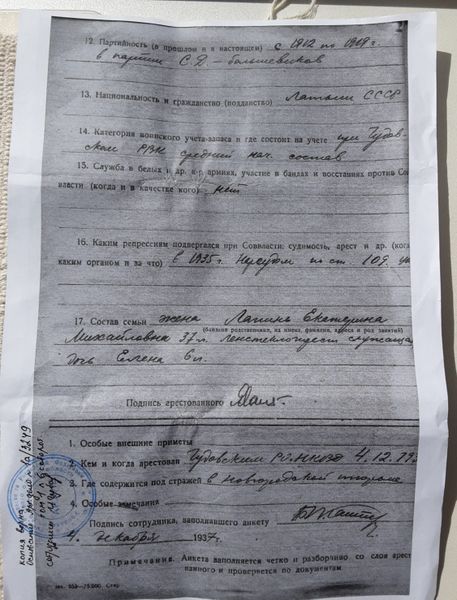 12. Партийность (в прошлом и в настоящем) с 1902 по 1919 г.
в партии С.Д - большевиков
13. Национальность и гражданство (подданство) Латыш СССР
14. Категория воинского учета-запаса и где состоит на учете при Чудов-
ском РВК средний нач. состав
15. Служба в белых и др. к-р. армиях, участие в бандах и восстаниях против Сов-
власти (когда и в качестве кого) нет
16. Каким репрессиям подвергался при Соввласти: судимость, арест и др. (ког
каким органом и за что) в 1935 г. Нарсудом по ст. 109 ук
17. Состав семьи жена Лапинь Екатерина
(близкие родственники, их имена, фамилии, адреса и род занятий)
Михайловна 37 л. служаща
дочь Елена 6 л.
Подпись арестованного
1. Особые внешние приметы
2. Кем и когда арестован Чудовским РО НКВД 4.12.
3. Где содержится под стражей в Новгородской тюрьме
4. Особые замечания
Подпись сотрудника, заполнявшего анкету
4. декабря 193
Примечания. Анкета заполняется четко и разборчиво, со слов арест
ванного и проверяется по документам
копия верна